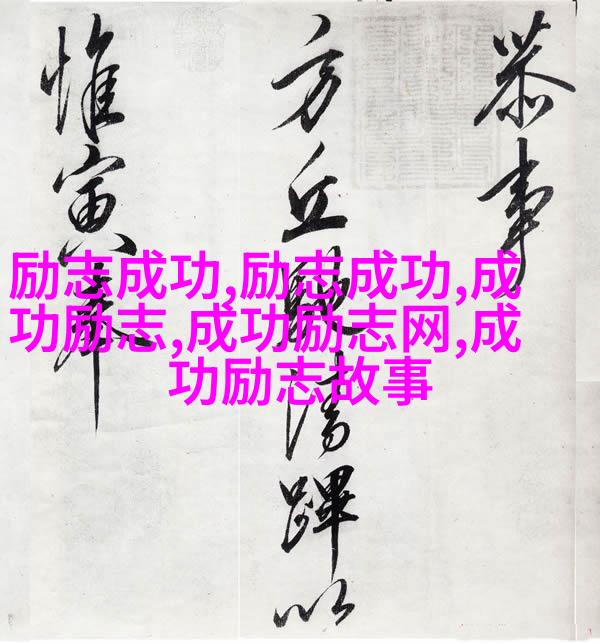 恭事
方丘清蹕以
惟寅奉
励志成功,励志成功,成
功励志,成功励志网,成
功励志故事